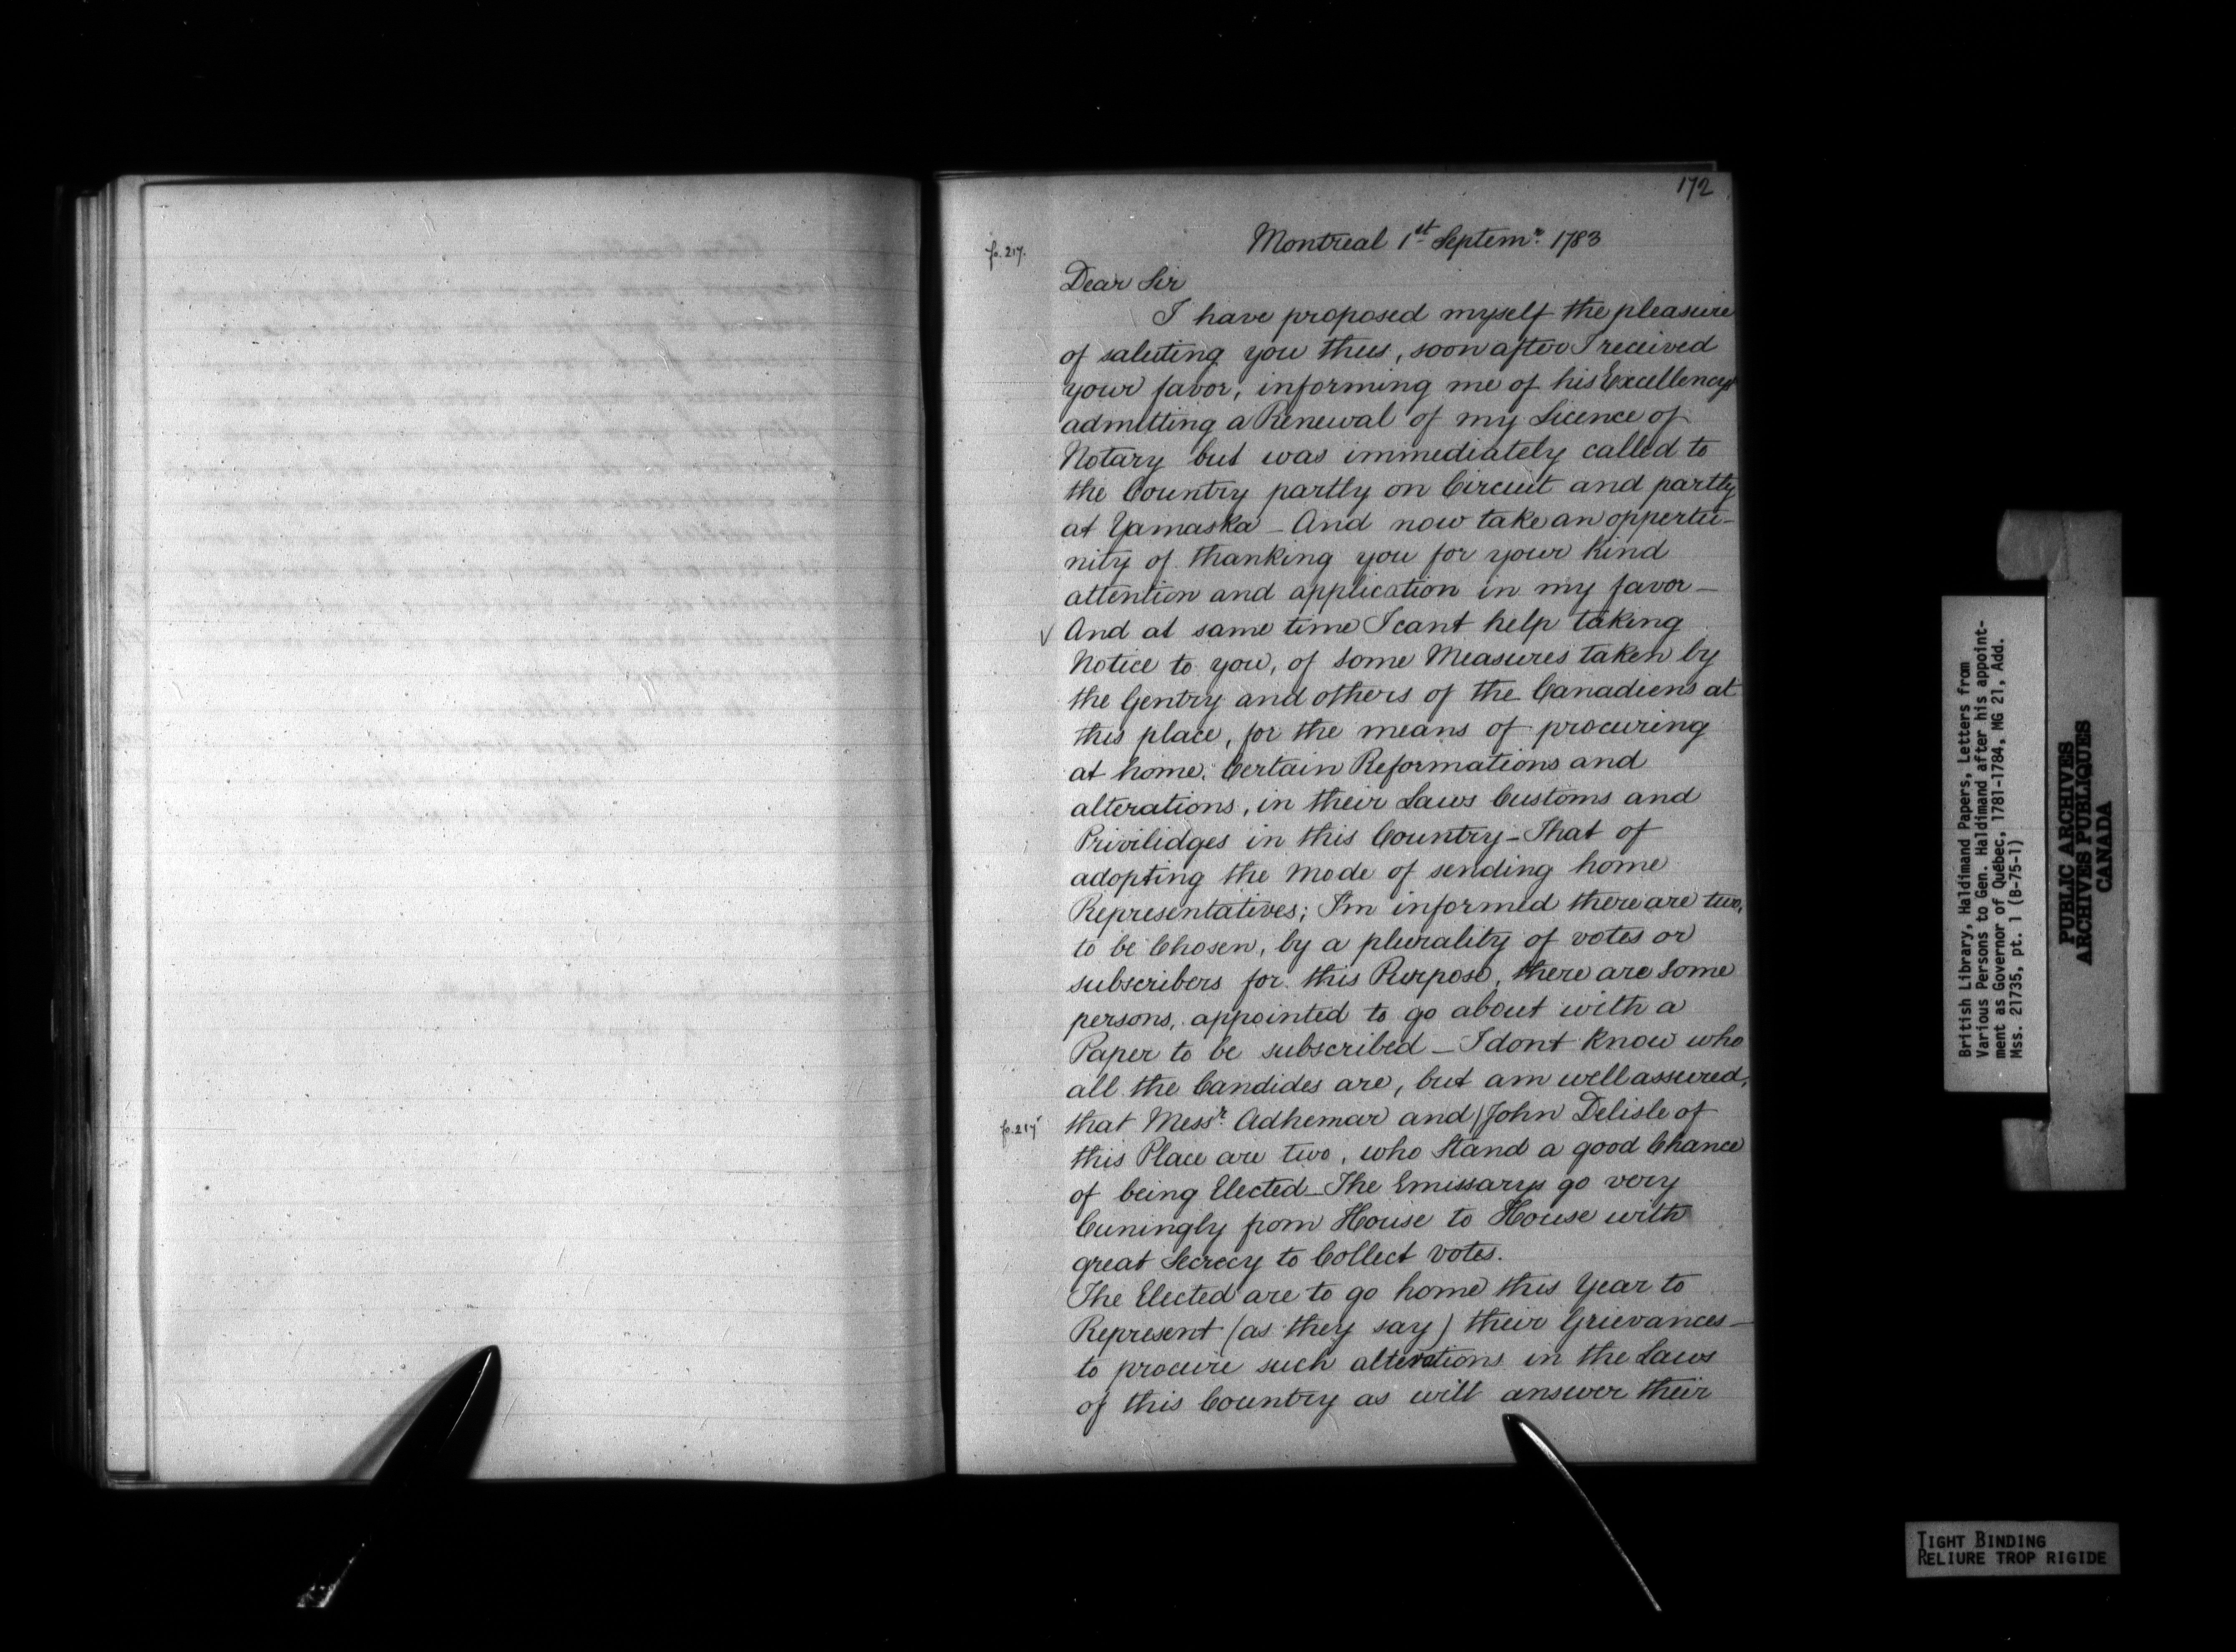 172
fo. 217.
Montreal 1st Septemr. 1783
Dear Sir
I have proposed myself the pleasure
of saluting you thus, soon after I received
your favor, informing me of his Excellencys
admitting a Renewal of my Licence of
Notary but was immediately called to
the Country partly on Circuit and partly
at Yamaska - And now take an oppertu-
nity of thanking you for your kind
attention and application in my favor -
√ And at same time I cant help taking
Notice to you, of some Measures taken by
the Gentry and others of the Canadiens at
this place, for the means of procuring
at home, Certain Reformations and
alterations, in their Laws Customs and
Privilidges in this Country - That of
adopting the Mode of sending home
Representatives; I'm informed there are two,
to be Chosen, by a plurality of votes or
subscribers for this Purpose, there are some
persons, appointed to go about with a
Paper to be subscribed - I dont know who
all the Candides are, but am well assured,
fo. 217
that Messr. Adhemar and / John Delisle of
this Place are two, who Stand a good Chance
of being Elected - The Emissarys go very
Cuningly from House to House with
great Secrecy to Collect votes.
The Elected are to go home this Year to
Represent (as they say) their Grievances -
to procure such alterations in the Laws
of this Country as will answer their
British Library, Haldimand Papers, Letters from
Various Persons to Gen. Haldimand after his appoint-
ment as Governor of Québec, 1781-1784, MG 21, Add.
Mss. 21735, pt. 1 (B-75-1)
PUBLIC ARCHIVES
ARCHIVES PUBLIQUES
CANADA
TIGHT BINDING
RELIURE TROP RIGIDE